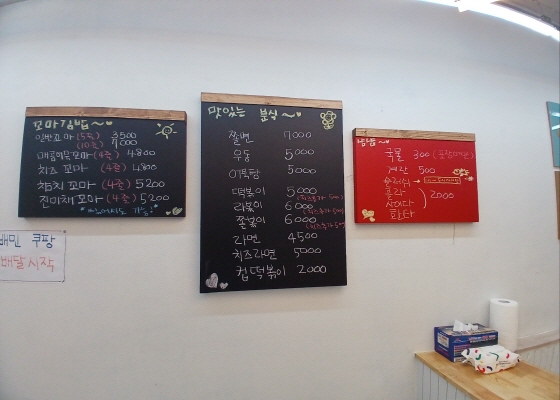 꼬마김밥~♥
일반꼬마 (5줄) 3500
(10줄) 7000
매콤어묵꼬마 (4줄) 4800
치즈꼬마 (4줄) 4800
참치꼬마 (4줄) 5200
진미채꼬마 (4줄) 5200
맛있는 분식~♥
쫄면 7000
우동 5000
어묵탕 5000
떡볶이 5000
라볶이 6000
쫄볶이 6000
라면 4500
치즈라면 5000
컵떡볶이 2000
냠냠~♥
국물 300
계란 500
슬러쉬
콜라
사이다
환타
2000
배민 쿠팡
배달시작